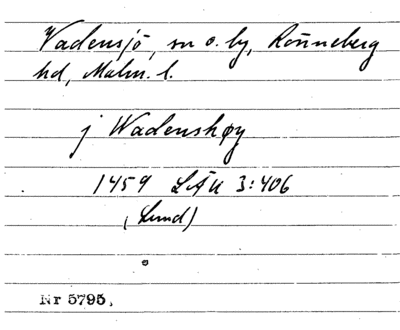 Vadensjö, sn o. by, Rönneberg
hd, Malm. l.
j Wadenshøy
1459 LÄU 3:406
(Lund)
Nr 5795.